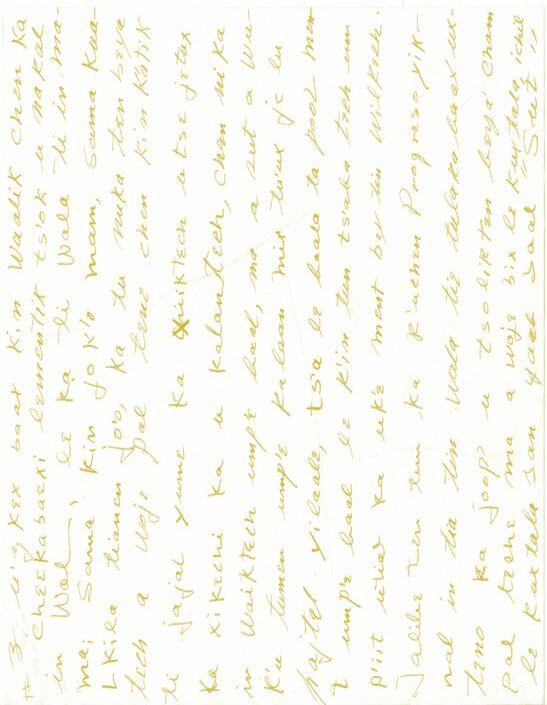 #3- u'z kex baax kin Waalik chen ka
cheekabaexi lementik ts'ok u nakal
in Wal, le ka li Wala ti in ma-
ma; Sama' kin Jok'o mam, Sama kaa-
Lkila tiamen Jo'o, ka tu nuka ten beya
tech a woje pal tene chen kin k'atik
ti jajal yume ka xuiktech utse jetux
ka xikechi ka u kalantech, chan ni ka
in waiktech ump'e baal, ma a sut a wu-
k'u tumen ump'e kalaan min tu'ux je lu
pajtel. yilaale, ts'a le baala ta pool men
t ump'e baal le k'iin tun ts'aba tech um
piit u'chak ka uk'e ment bey tin wilkech.
Jalibe ten tun ka k'uchen Progreso yik-
nal in tia tin Wala tie tulaka baax ux-
teno ka joop' u tsolikten beya' cham
Pal teche ma a woje bix le kuxtala ichil
le kaxtala yan yaab Jaal "Sut"